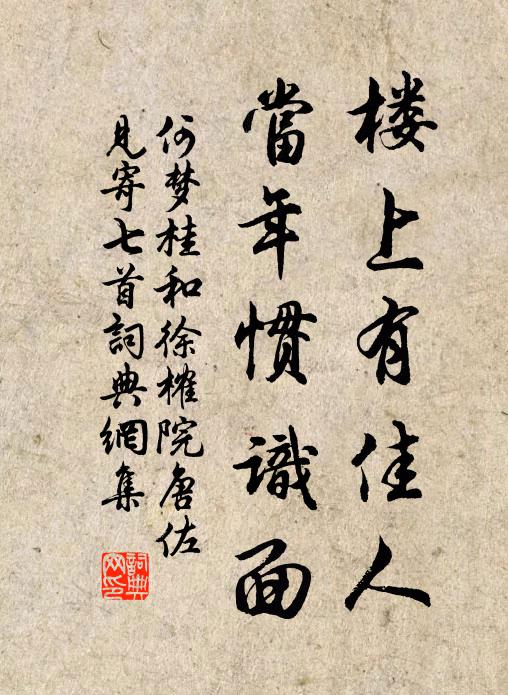 楼上有佳人
當年慣識面
何梦桂和徐榷院唐佐
見寄七首詞典網集
詞典
网印